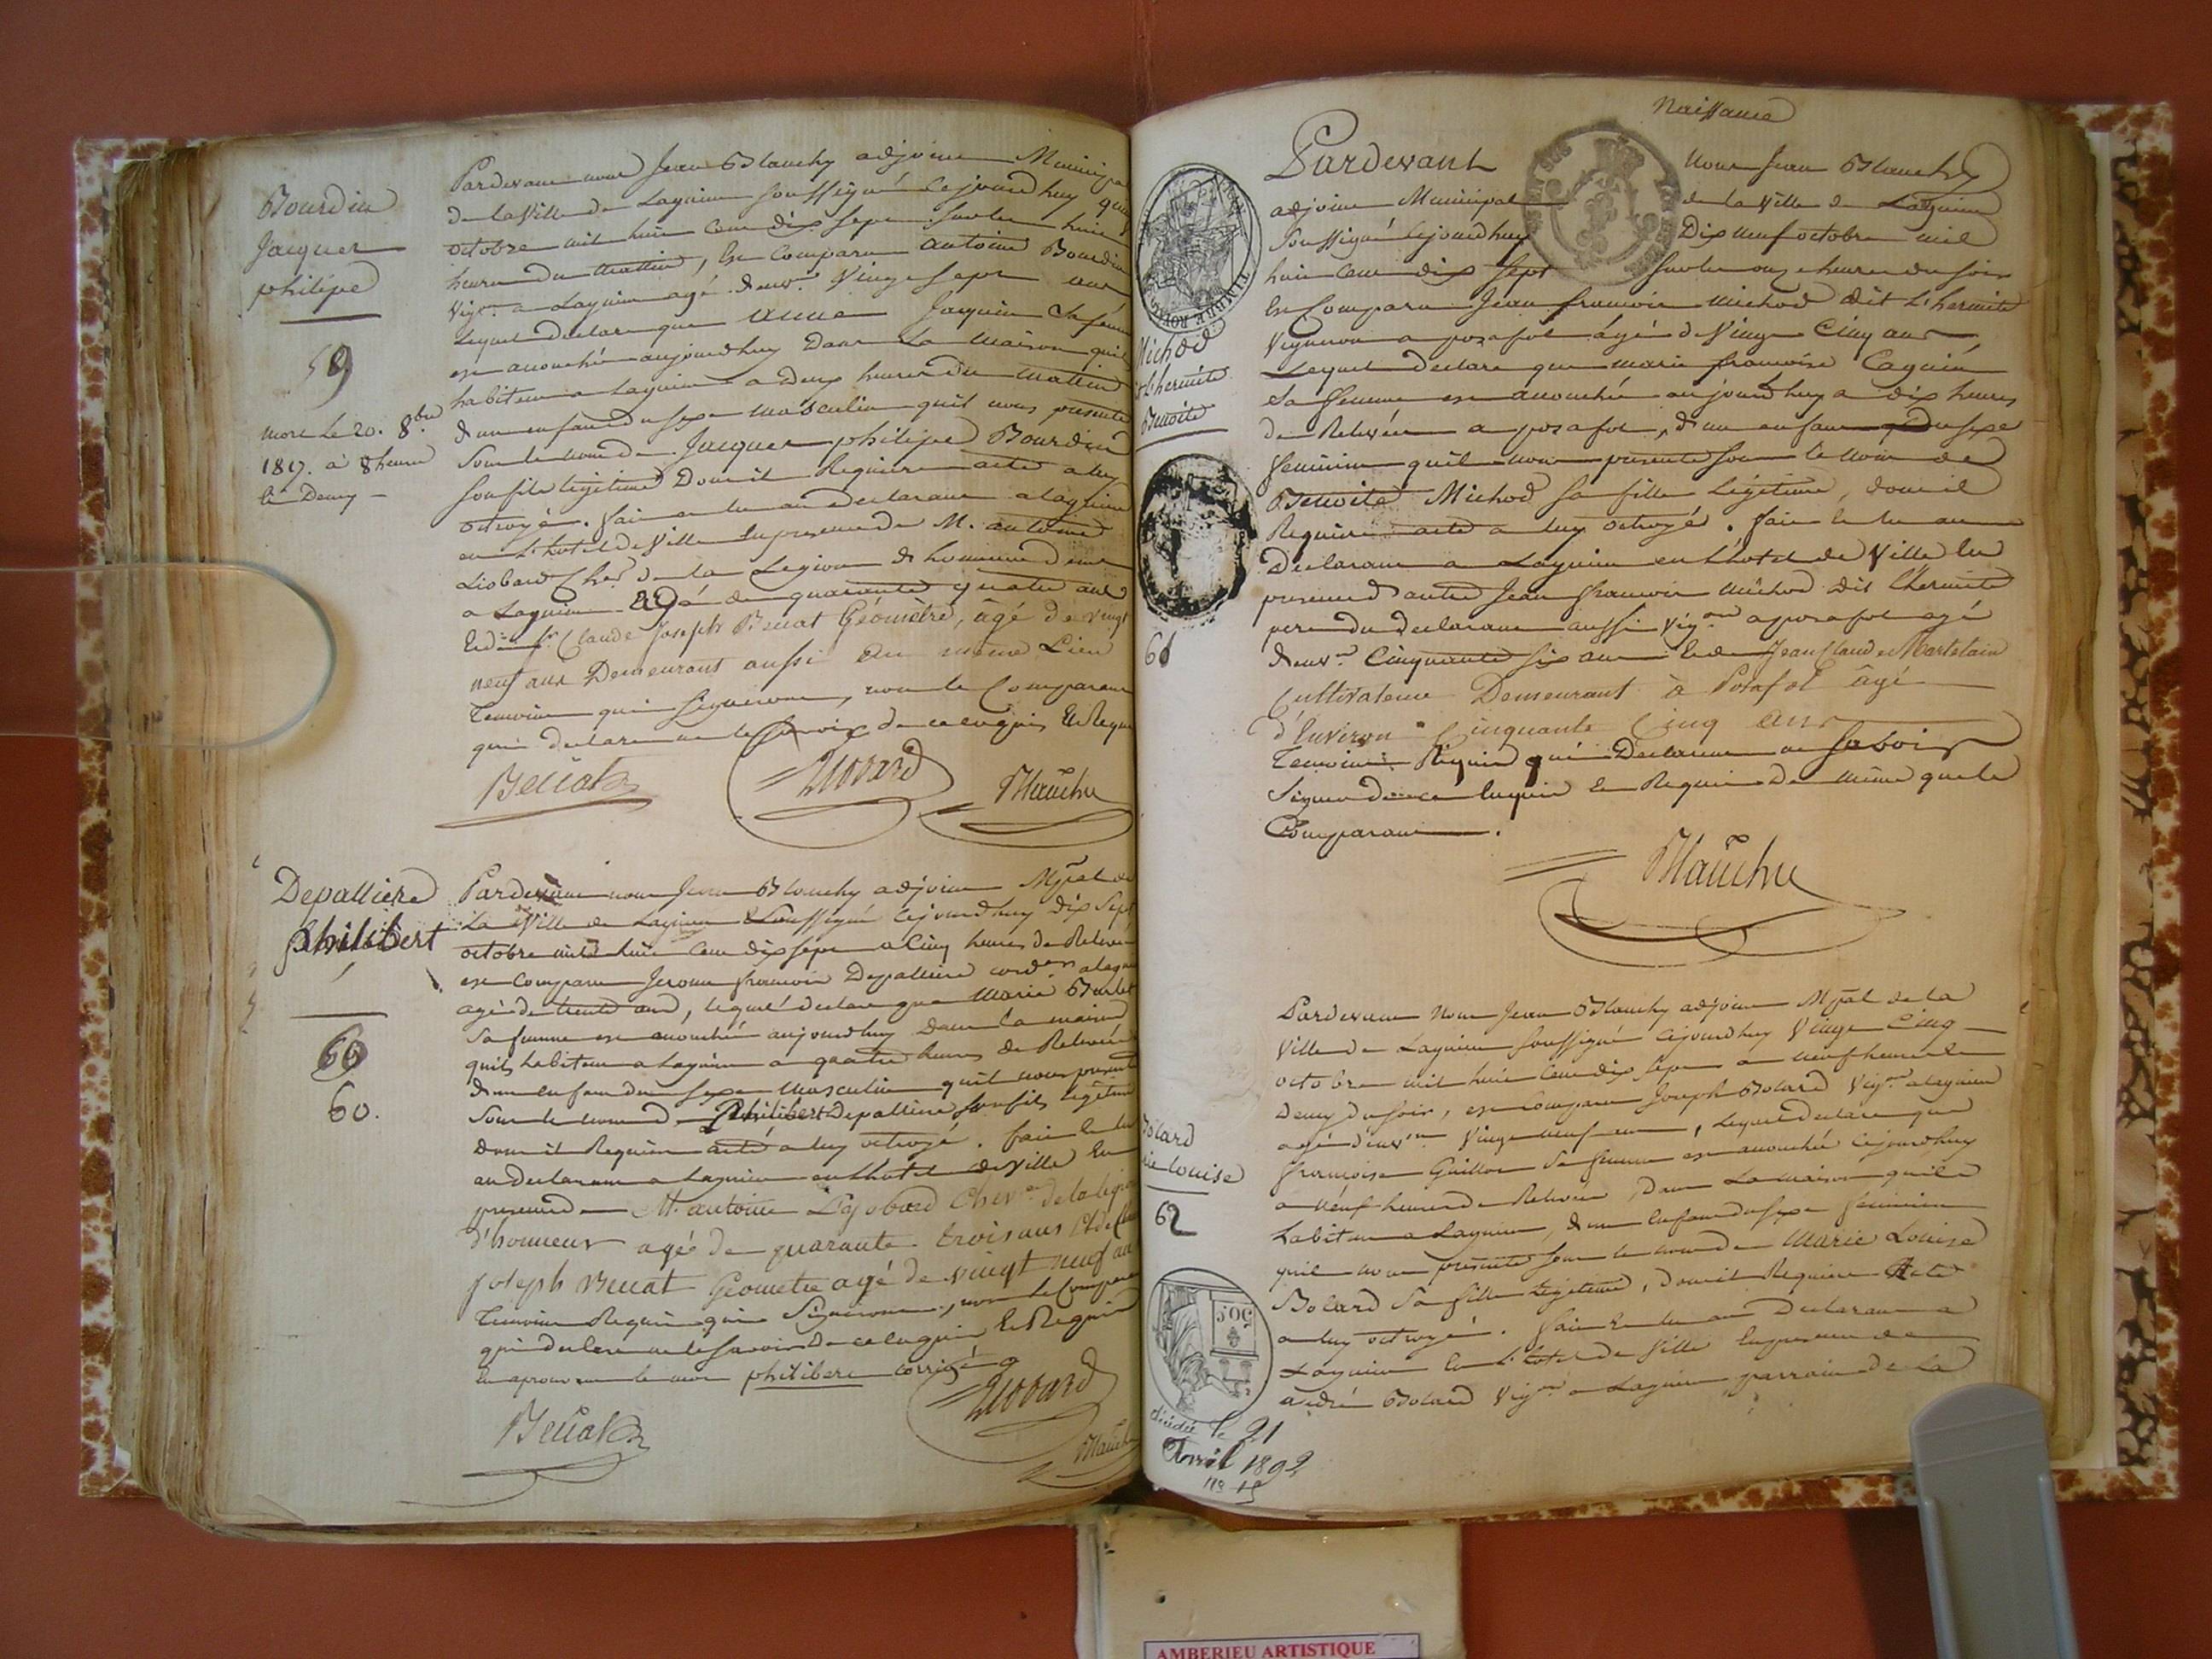 Bourdin
Jacques
philipe
59
mort le 20. 8.bre
1817. à 8 heure
et Demy
Pardevant nous Jean Blanchy adjoint Municipal
de la Ville de Lagnieu soussigné cejourdhuy
octobre mil huit cent dix sept sur les huit
heures du Mattin, Est Comparu antoine Bourdin
Vign. a Lagnieu agé d'env. Vingt sept ans
Lequel declare que anne Jaquin Sa femme
est accouchée aujourdhuy Dans La Maison quil
habitent a Lagnieu a deux heures du Mattin
d'un enfant du sexe Masculin quil nous presente
Sous le nom de Jacques philipe Bourdin
son fils legitime Dont il Requiert acte a luy
octroyé. fait et lu au declarant a Lagnieu
en L'hotel de Ville En presence de M. antoine
Liobard Cher de la Legion d honneur dem.
a Lagnieu agé de quarante quatre ans
Et de Sr. Claude Joseph Beuat Géomètre, âgé de vingt
neuf ans Demeurant aussi au même Lieu
Temoins qui signeront, non le Comparant
qui declare ne le savoir de ce enquis Et Requis
Beuat Liobard Blanchy
Depalliere
philibert
60.
Pardevant nous Jean Blanchy adjoint Mpal de
La Ville de Lagnieu Soussigné cejourdhuy dix Sept
octobre mil huit cent dix sept a Cinq heures de Relevée
est Comparu Jerome francois Depalliere cord.er a Lagnieu
agé de trente ans, lequel declare que Marie
Sa femme est accouchée aujourdhuy Dans la maison
quils habitent a Lagnieu a quatre heures de Relevée
d'un enfant du sexe Masculin quil nous presente
Sous le nom de Philibert Depalliere son fils legitime
Dont il Requiert acte a luy octroyé. fait et lu
au declarant a Lagnieu en Lhotel de Ville En
presence de M. antoine Lyobard Chev.er de la legion
d'honneur agé de quarante trois ans Et de Claude
Joseph Beuat Géometre agé de vingt neuf ans
Temoins Requis qui Signeront, non le Comparant
qui declare ne le savoir De ce enquis Et Requis
En aprouvant le mot philibert corrigé
Beuat Liobard Blanchy
Naissance
Michod
dt L'hermite
Benoite
61
Pardevant Nous Jean Blanchy
adjoint Municipal de la Ville de Lagnieu
Soussigné cejourdhuy Dix neuf octobre mil
huit cent dix sept sur les onze heures du soir
Est Comparu Jean francois Michod dit L'hermite
Vigneron a posafol agé de Vingt Cinq ans
Lequel declare que marie francoise Caguin
Sa femme est accouchée aujourdhuy a dix heures
de Relevée a posafol, d'un enfant du sexe
feminin quil nous presente sous le nom de
Benoite Michod sa fille Légitime, dont il
Requiert acte a luy octroyé. fait et lu au
Declarant a Lagnieu en L'hotel de Ville En
presence d'autre Jean francois Michod dit L'hermite
pere du declarant aussi Vign.on a posafol agé
d'env.on Cinquante six ans et de Jean Claude Martelain
Cultivateur Demeurant à Posafol âgé
d'Environ Cinquante Cinq ans
Temoins Requis qui Declarent ne Savoir
Signer de ce enquis Et Requis De même que le
Comparant.
Blanchy
Bolard
Marie Louise
62
50 C
décédée le 21
Avril 1892
No 19
Pardevant Nous Jean Blanchy adjoint Mpal de la
Ville de Lagnieu soussigné cejourdhuy Vingt Cinq
octobre mil huit cent dix sept a neuf heures et
demy du soir, est Comparu Joseph Bolard Vign.on a Lagnieu
agé d'env.on Vingt neuf ans, Lequel declare que
françoise Guillon Sa femme est accouchée cejourdhuy
a neuf heures de Relevée, Dans La maison quil
habitent a Lagnieu, d'un Enfant du sexe feminin
quil nous presente sous le nom de Marie Louise
Bolard Sa fille Légitime, dont il Requiert Acte
a luy octroyé. fait et lu au Declarant a
Lagnieu En L'hotel de Ville En presence de
andré Bolard Vign.on a Lagnieu, parrain de la
AMBERIEU ARTISTIQUE